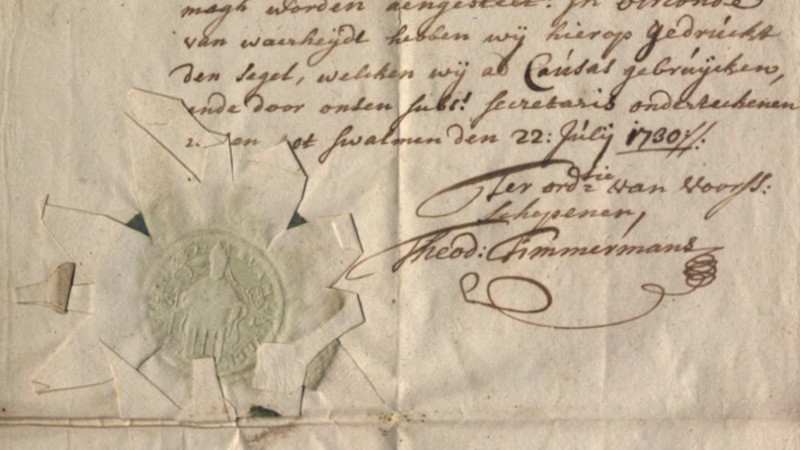 magh worden aengestelt. In oirconde
van waerheydt hebben wij hierop gedruckt
den segel, welcken wij ad Causas gebruijcken,
ende door onsen subst. secretaris onderteekenen
tot swalmen den 22: Julij 1730//:
Ter ordtie van voorss:
schepenen,
Theod: Timmermans